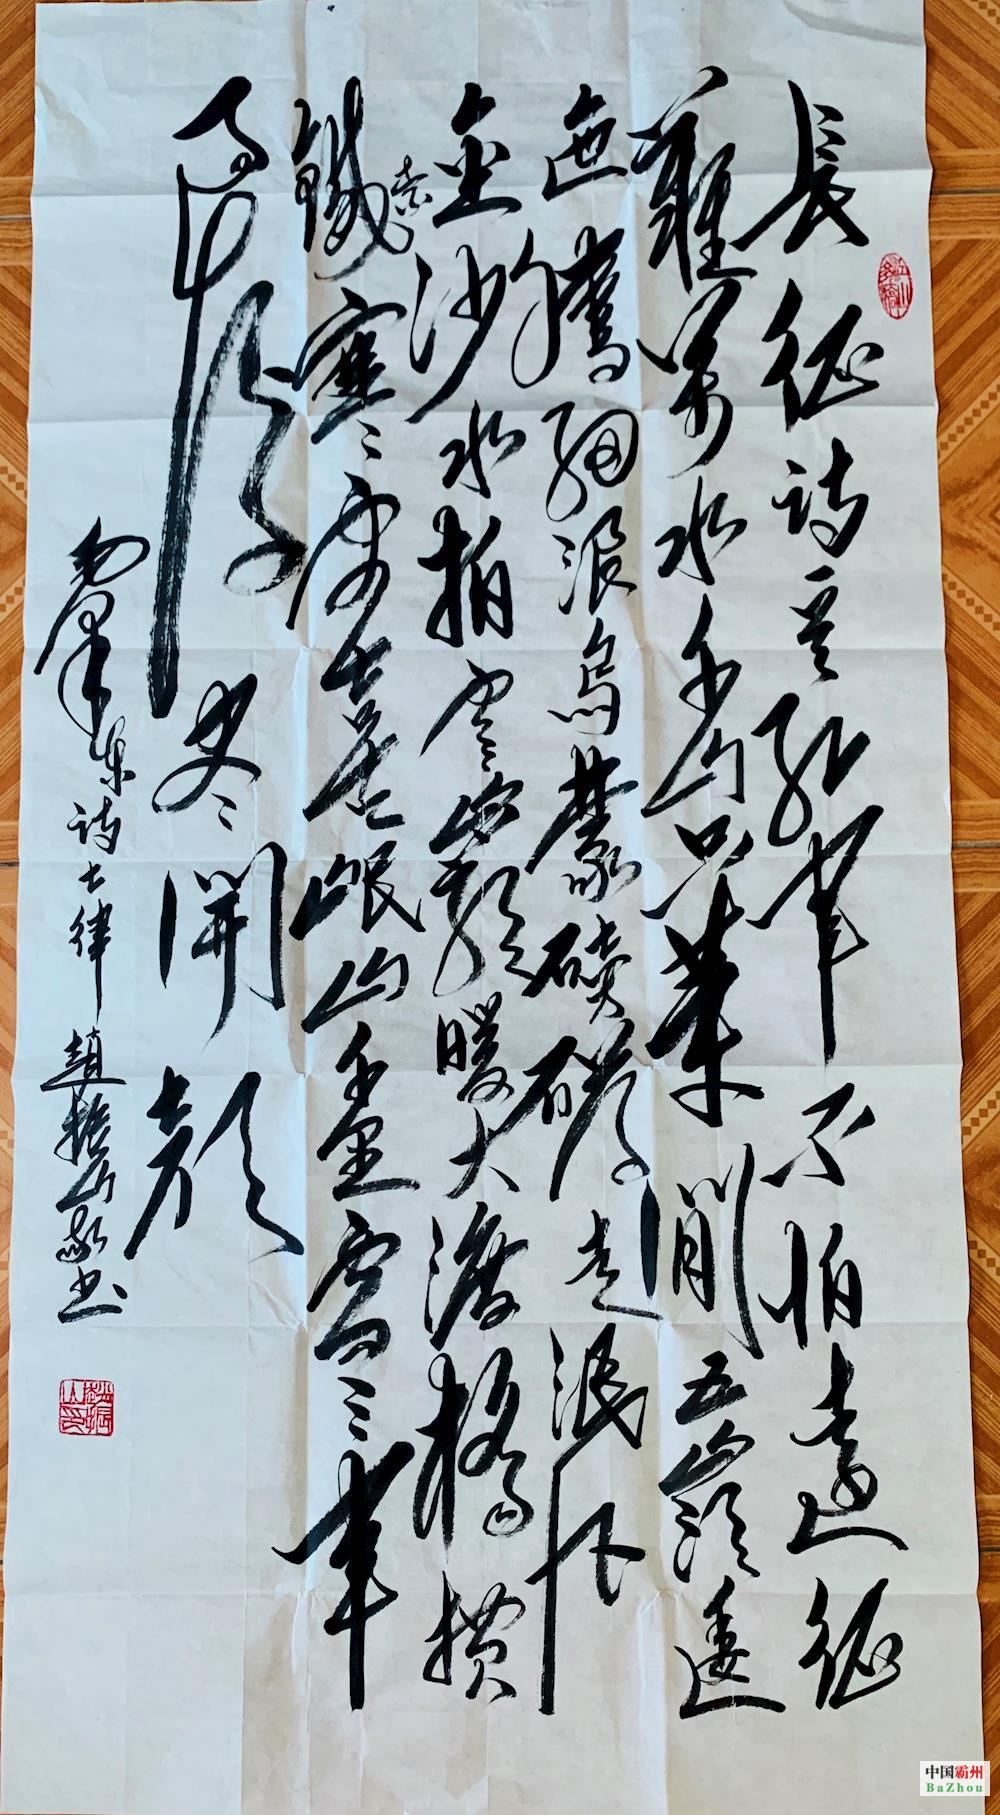 長征诗 紅軍不怕遠征
難萬水千山只等閒五嶺逶
迤騰細浪烏蒙磅礴走泥丸
金沙水拍雲崖暖大渡橋横
鐵索寒更喜岷山千里雪三軍
過後盡開顏
毛澤東诗七律 趙振山敬书
趙振山印
中国霸州
BaZhou